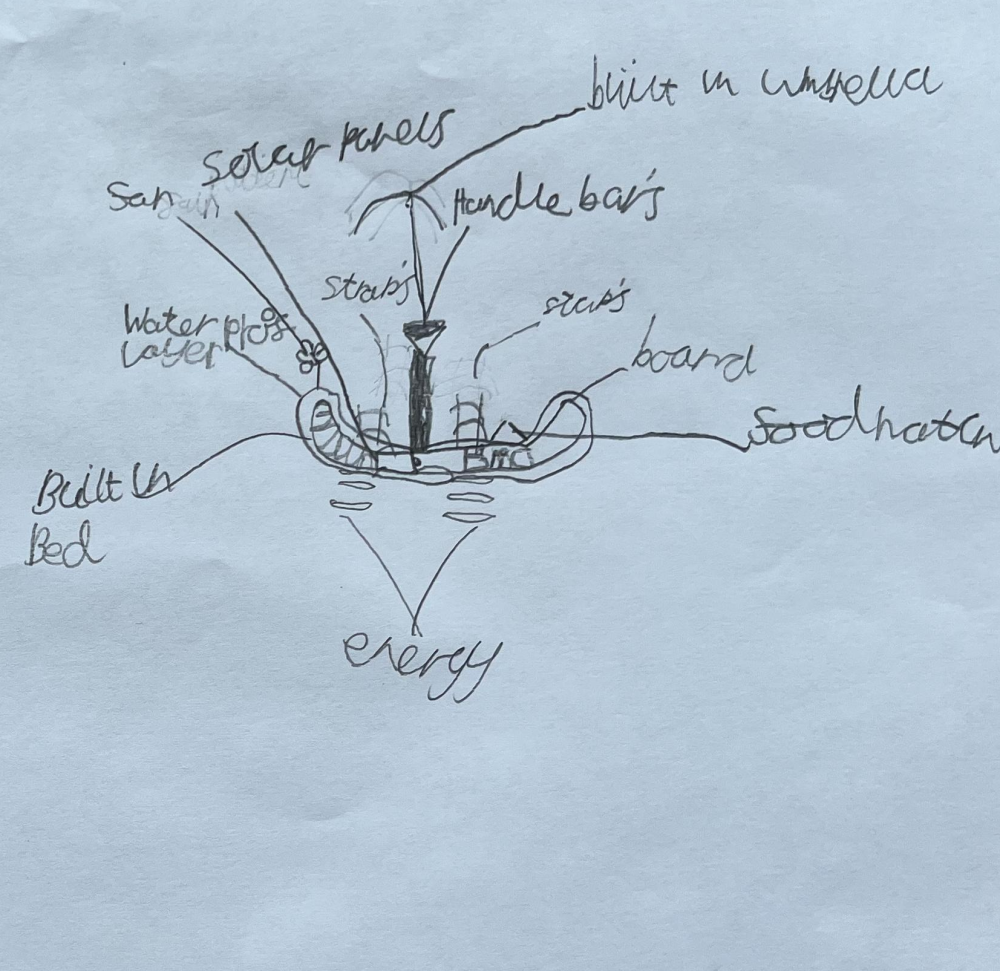 built in umbrella
Solar panels
San
Handle bar's
strap's
strap's
Water proof
Layer
board
Foodhatch
Built in
Bed
energy